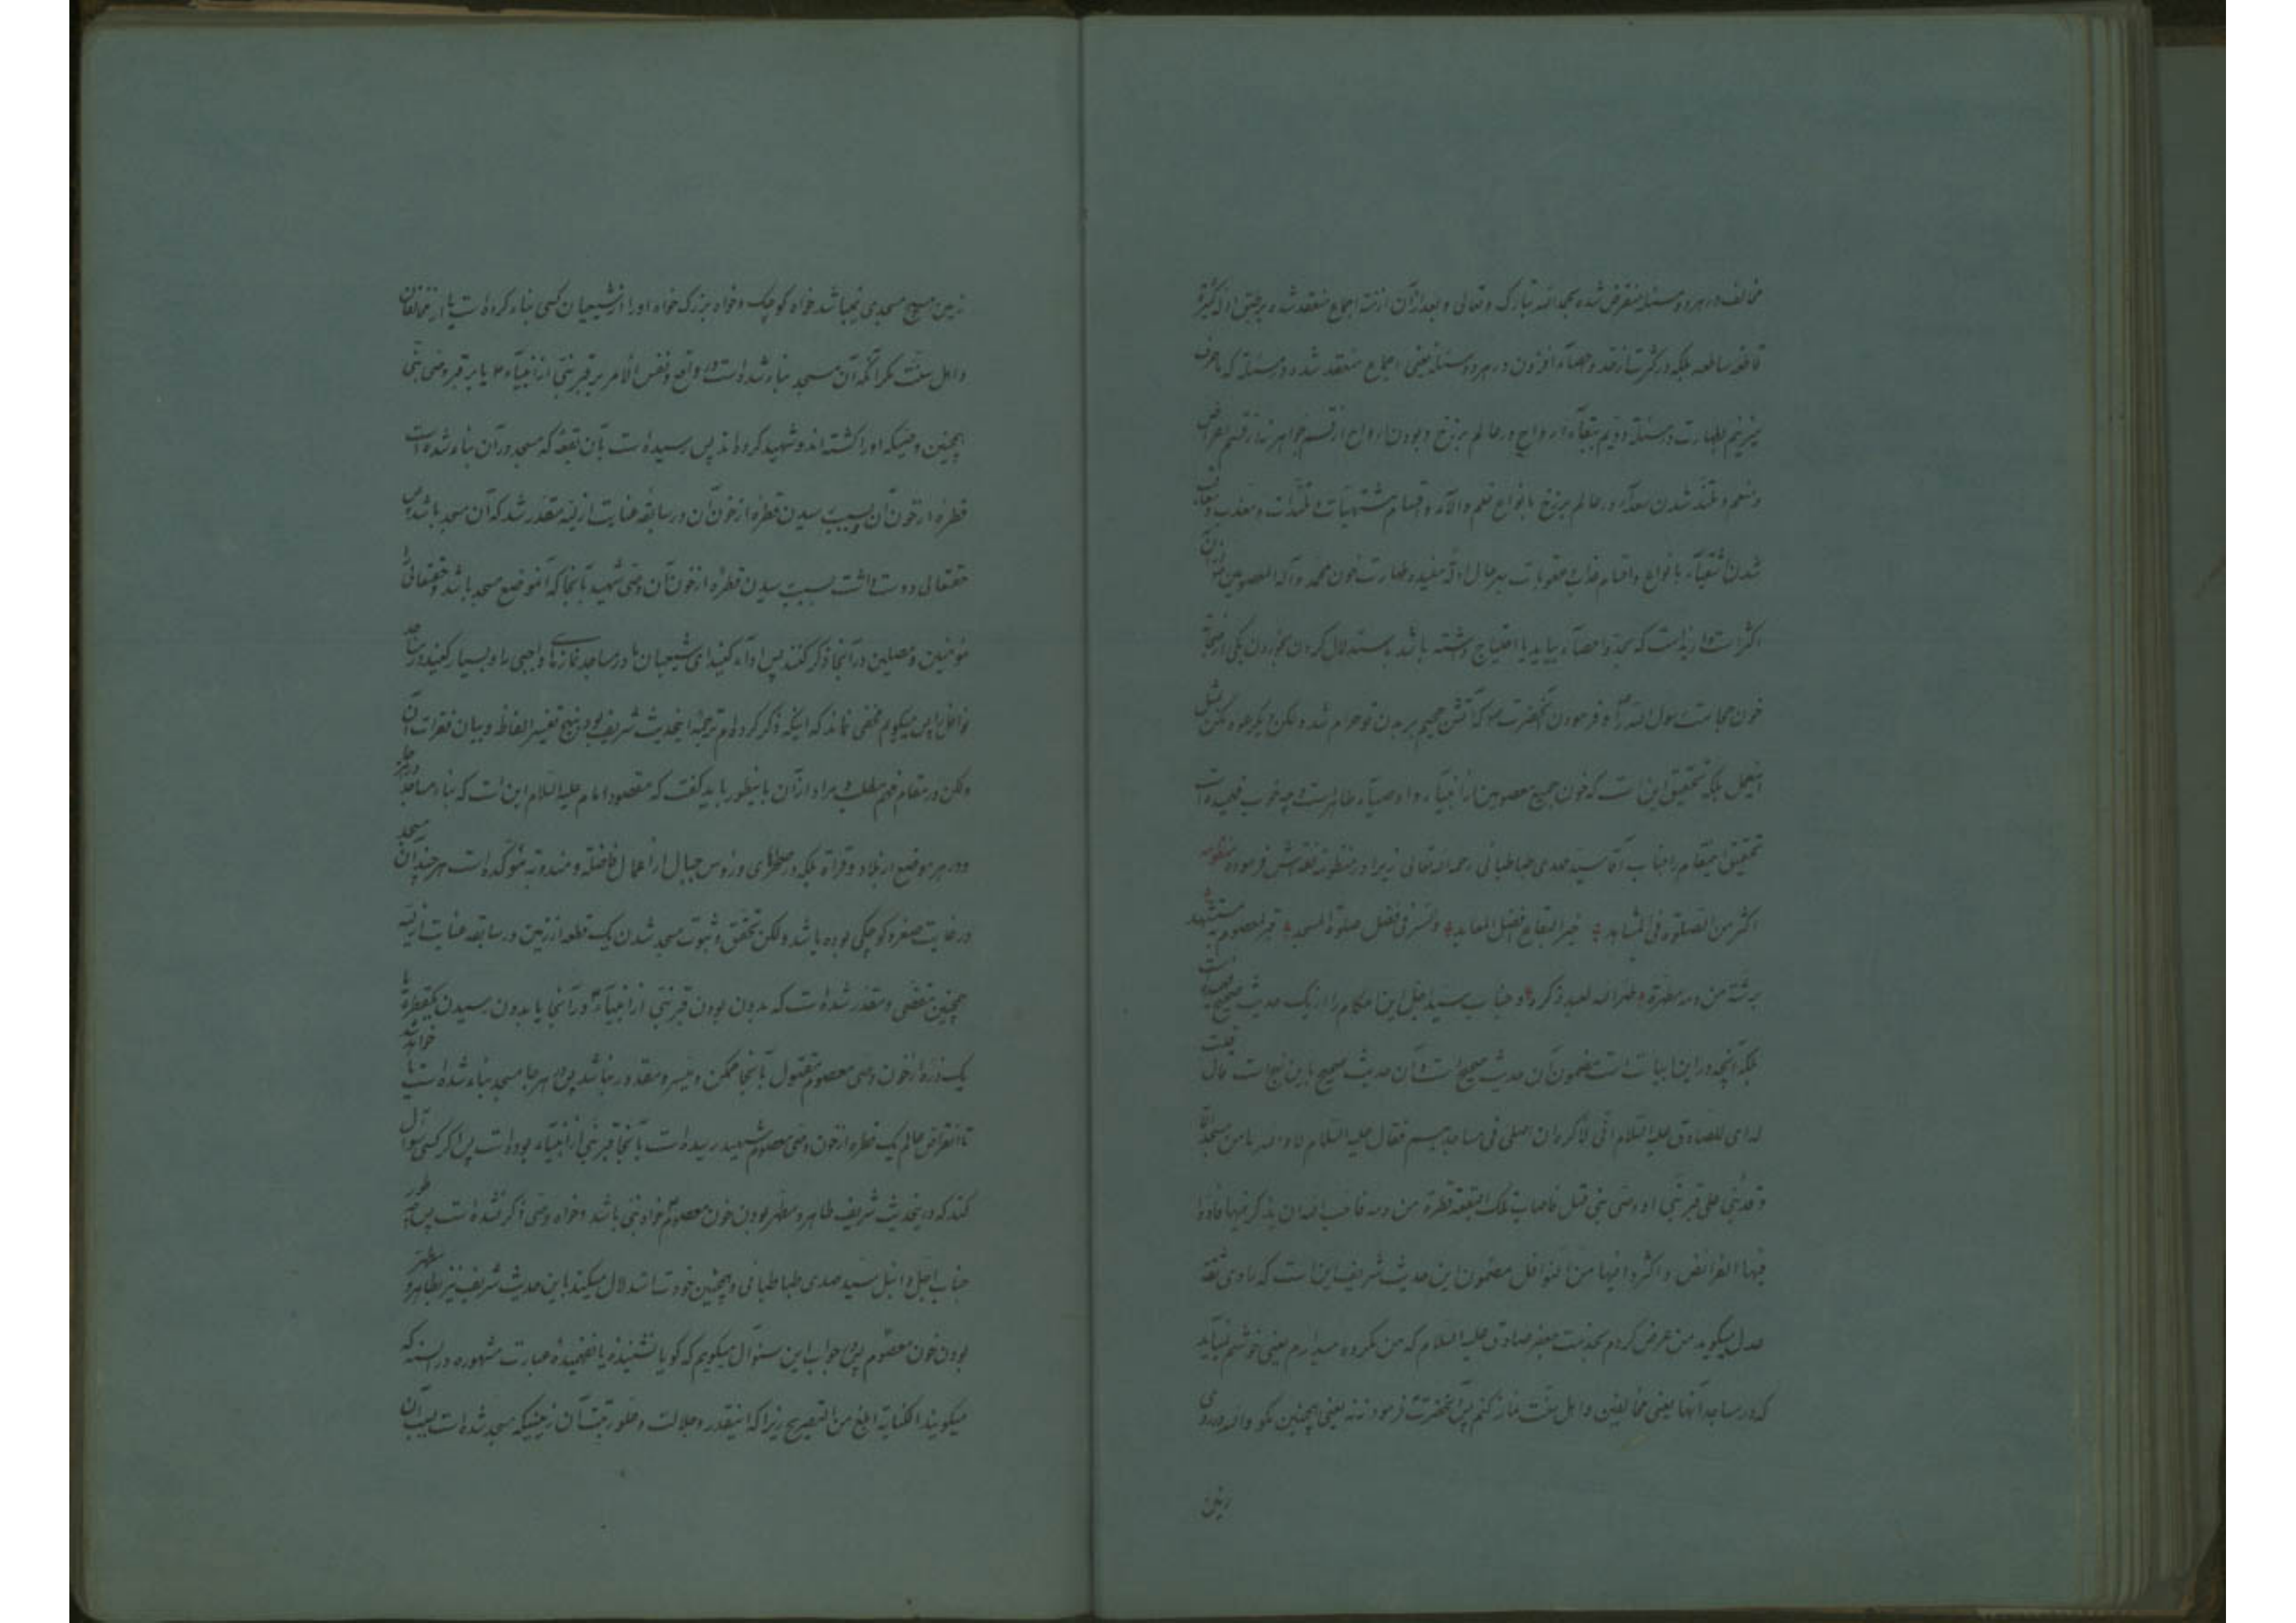 مخالف در هر دو مسئله منقرض شده بحمد الله تبارک و تعالی و بعد از آن ازمنه اجماع منعقد شده بر طبق ادله کثیره
قاطعه ساطعه بلکه در کثرت از حد و احصاء افزون در هر دو مسئله یعنی اجماع منعقد شد در مسئله که ما حرف
میزنیم بطهارت و مسئله دویم ببقاء ارواح در عالم برزخ و بودن ارواح از قسم جواهر نه از قسم اعراض
و منعم و متلذذ شدن سعداء در عالم برزخ بانواع نعم و آلاء و اقسام مشتهیات و تلذذات و معذب و معاقب
شدن اشقیاء بانواع و اقسام عذاب و عقوبات بهر حال ادله مفیده طهارت خون محمد و آله المعصومین
اکثر است از اینست که بحد و احصاء بیاید یا احتیاج داشته باشد باستدلال کردن بخوردن یکی از صحابه
خون حجامت رسول الله را و فرمودن آنحضرت که آتش جحیم بر بدن تو حرام شد ولکن دیگر عود مکن بمثل
اینعمل بلکه تحقیق این است که خون جمیع معصومین از انبیاء و اوصیاء طاهر است و چه خوب فهمیده است
تحقیق اینمقام را جناب آقا سید مهدی طباطبائی رحمه الله تعالی زیرا در منظومه فقه‌اش فرموده منظومه
اکثر من الصلوة فی المشاهد خیر البقاع افضل المعابد و السر فی فضل صلوة المسجد قبر لمعصوم به مستشهد
برشة من دمه مطهرة طهره الله لعبد ذکره و جناب سید اجل این احکام را از یک حدیث صحیح فهمیده است
بلکه آنچه در این ابیات است مضمون آن حدیث صحیح است و آن حدیث صحیح باین نهج است قال قلت
لابی عبد الله الصادق علیه السلام انی لاکره ان اصلی فی مساجدهم فقال علیه السلام لا والله ما من مسجد الا
و قد بنی علی قبر نبی او وصی نبی قتل فاصاب تلک البقعة قطرة من دمه فاحب الله ان یذکر فیها فادوا
فیها الفرائض و اکثروا فیها من النوافل مضمون این حدیث شریف این است که راوی ثقه
عدل میگوید من عرض کردم بخدمت جعفر صادق علیه السلام که من مکروه میدارم یعنی خوشم نمیآید
که در مساجد آنها یعنی مخالفین و اهل سنت نماز کنم پس آنحضرت فرمودند نه یعنی همچنین مگو والله در روی
زمین
زمین هیچ مسجدی نمیباشد خواه کوچک و خواه بزرگ خواه او را از شیعیان کسی بناء کرده است یا از مخالفان
و اهل سنت مگر آنکه آن مسجد بناء شده است در واقع و نفس الامر بر قبر نبی از انبیاء یا بر قبر وصی نبی
همچنین وصیکه او را کشته‌اند و شهید کرده‌اند پس رسیده است بآن بقعه که مسجد در آن بناء شده است
قطره از خون آن و بسبب رسیدن قطره از خون آن در سابقه عنایت ازلیه مقدر شد که آن مسجد باشد پس
حقتعالی دوست داشت بسبب رسیدن قطره از خون آن وصی شهید بآنجا که آنموضع مسجد باشد و حقتعالی را
مؤمنین و مصلین در آنجا ذکر کنند پس اداء کنید ای شیعیان ما در مساجد نمازهای واجبی را و بسیار کنید در مساجد
نوافل را پس میگویم مخفی نماند که اینکه ذکر کرده‌ام ترجمه اینحدیث شریف بود بنهج تفسیر الفاظ و بیان فقرات آن
ولکن در مقام فهم مطلب و مراد از آن باینطور باید گفت که مقصود امام علیه السلام این است که بناء مساجد در هر جا
و در هر موضع از بلاد و قراء بلکه در صحراهای و رؤس جبال از اعمال فاضله و مندوبه مؤکده است هر چند آن مسجد
در غایت صغر و کوچکی بوده باشد ولکن تحقق و ثبوت مسجد شدن یک قطعه از زمین در سابقه عنایت ازلیه
همچنین مقضی و مقدر شده است که بدون بودن قبر نبی از انبیاء در آنجا یا بدون رسیدن یکقطره یا
یک ذره از خون وصی معصوم مقتول بآنجا ممکن و میسر و مقدور نباشد پس در هر جا مسجد بناء شده است یا خواهد شد
تا انقراض عالم یک قطره از خون وصی معصوم شهید رسیده است بآنجا قبر نبی از انبیاء بوده است پس اگر کسی سؤال
کند که در اینحدیث شریف طاهر و مطهر بودن خون معصوم خواه نبی باشد و خواه وصی ذکر نشده است پس چه طور
جناب اجل و انبل سید مهدی طباطبائی و همچنین خودت استدلال میکنید باین حدیث شریف نیز بطاهر و مطهر
بودن خون معصوم پس در جواب این سئوال میگویم که گویا نشنیده یا نفهمیده عبارت مشهوره در السنه که
میگویند الکنایة ابلغ من التصریح زیرا که اینقدر و جلالت و علو رتبت آن زمینیکه مسجد شده است بسبب آن